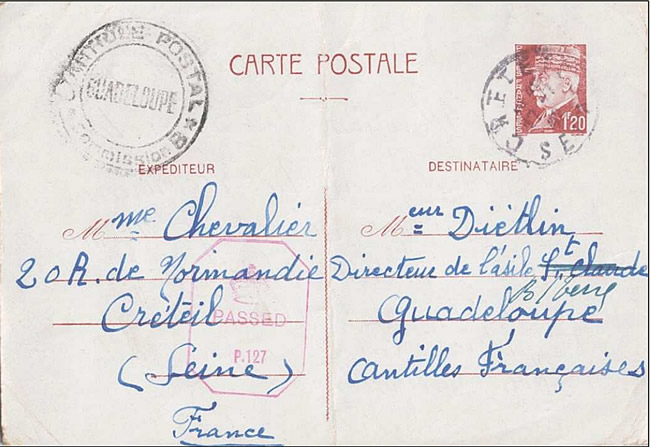 CONTRÔLE POSTAL
GUADELOUPE
Commission B
CARTE POSTALE
1F20
CRETEIL
SEINE
EXPÉDITEUR
Mme Chevalier
20 R. de Normandie
Créteil
(Seine)
France
PASSED
P.127
DESTINATAIRE
Meur Diétlin
Directeur de l'asile St Claude
Guadeloupe
Antilles Françaises